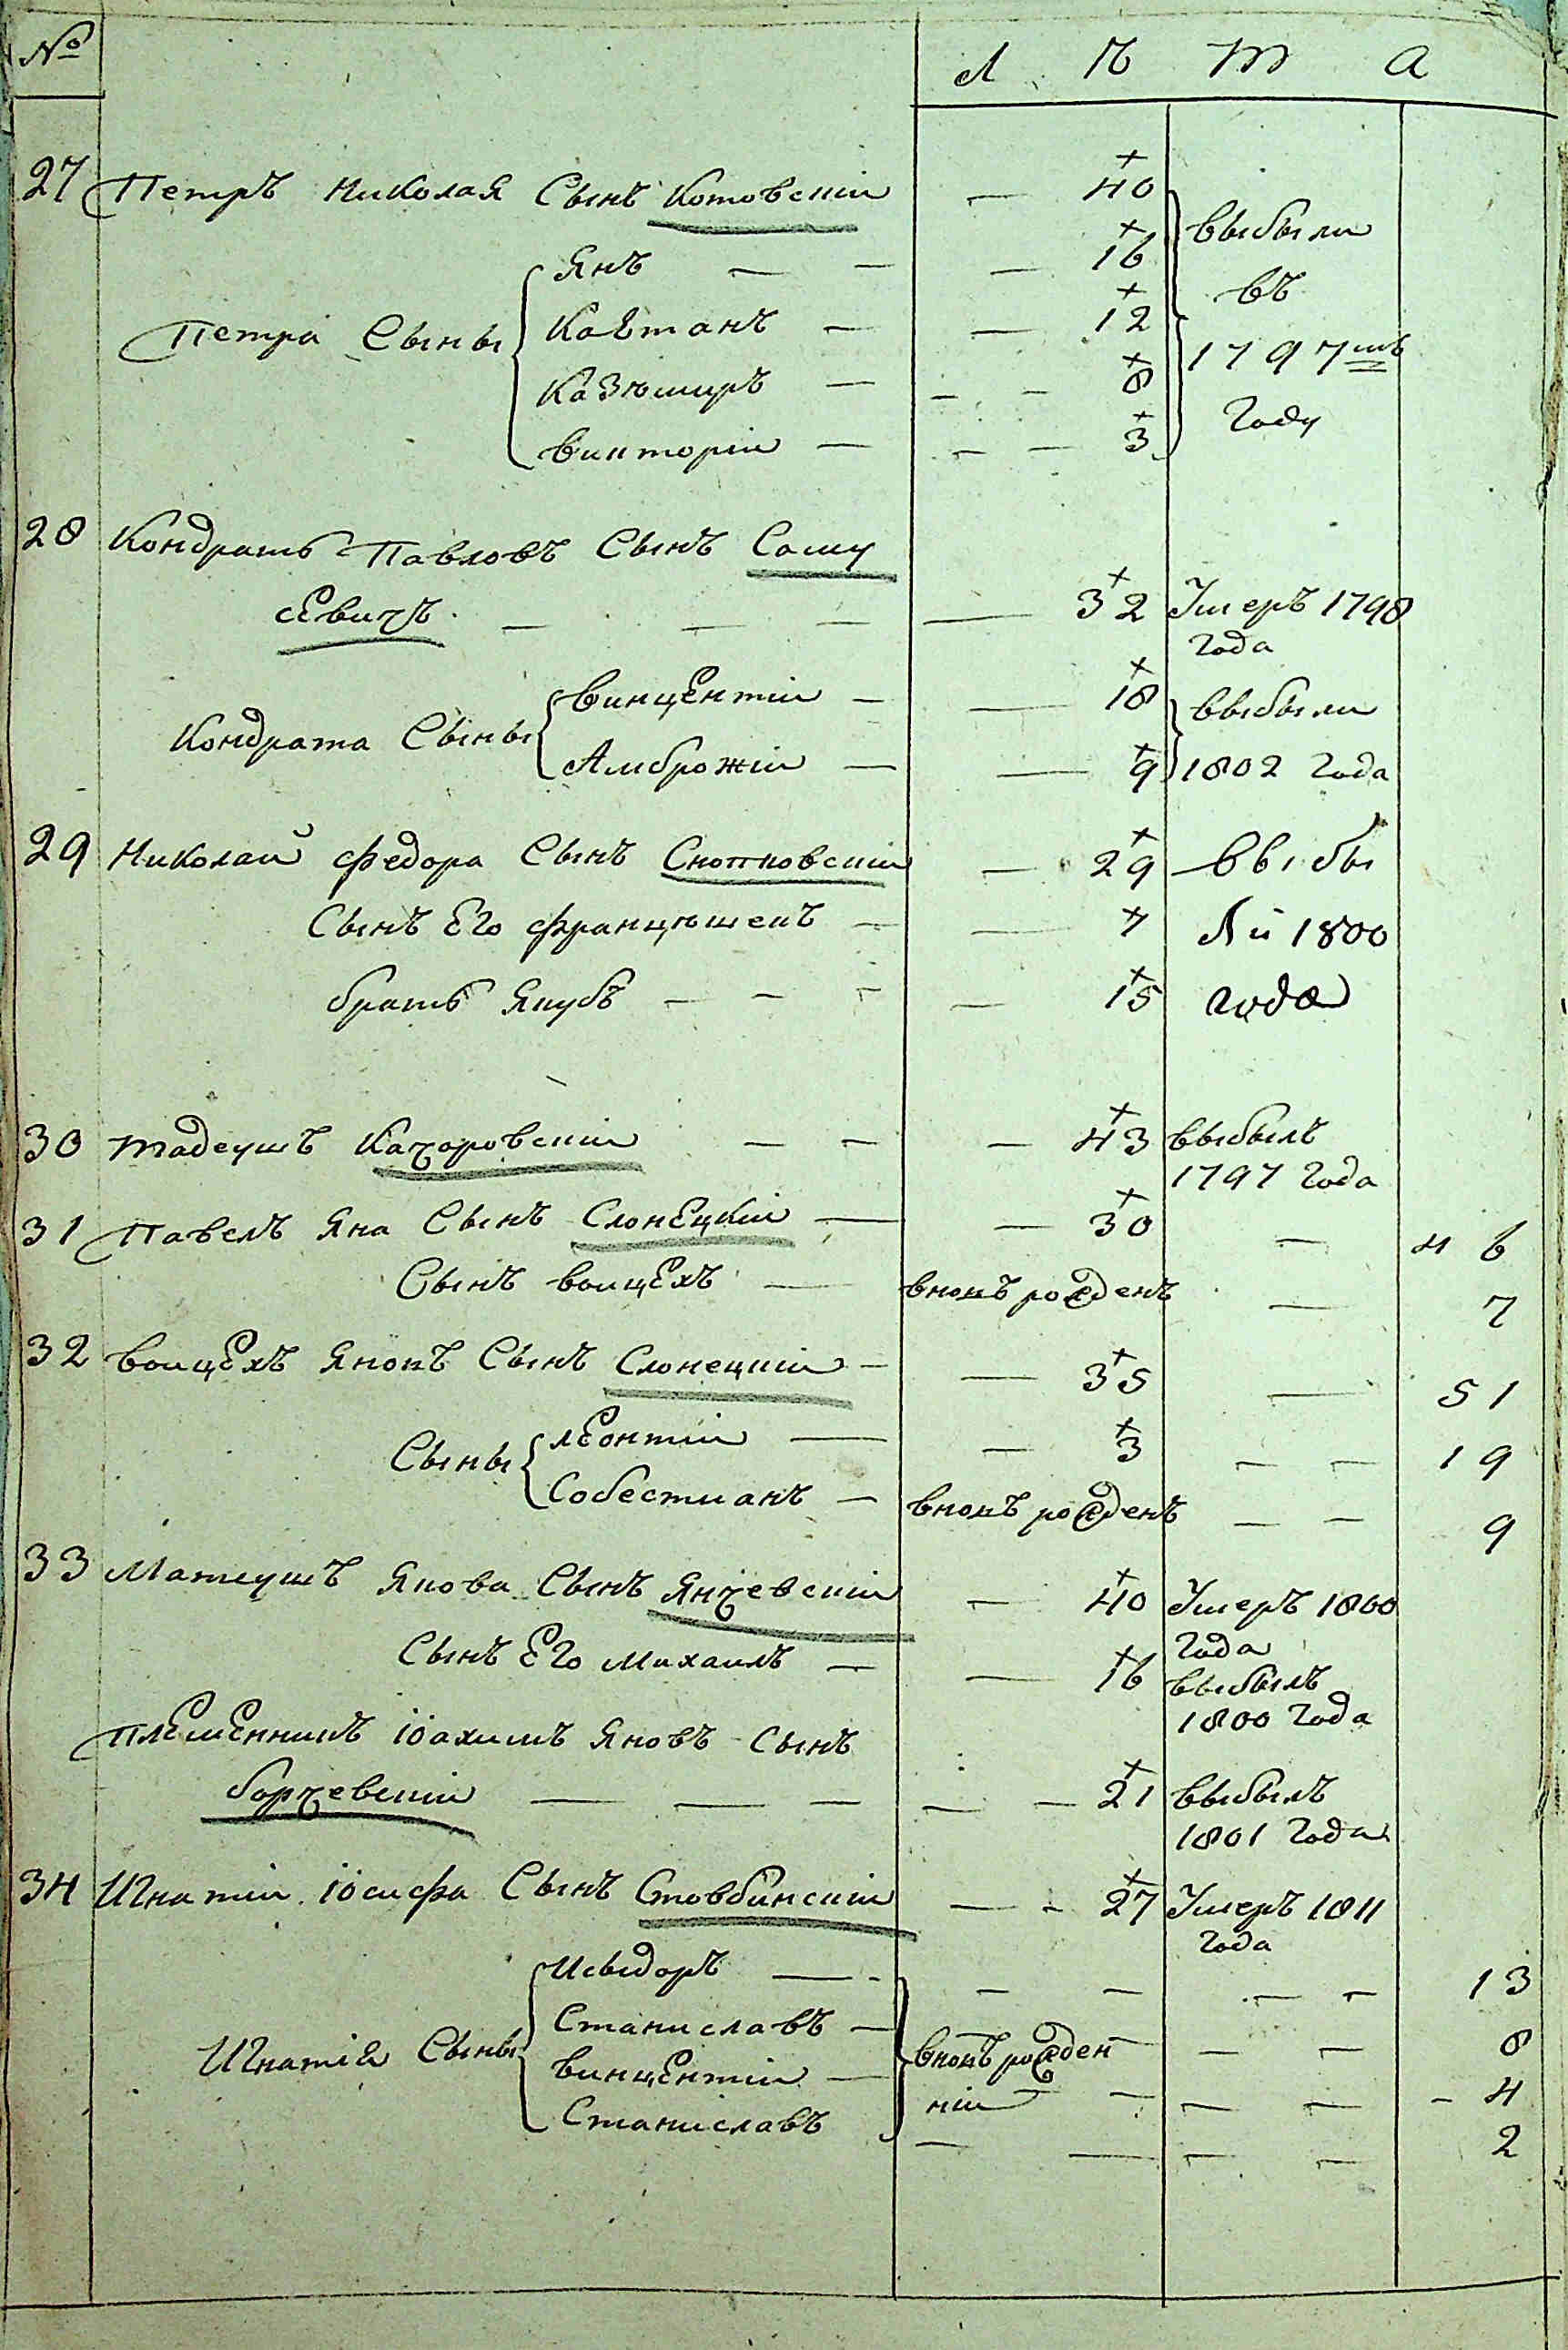 № Л Ѣ Т А
27 Петръ Николая Сынъ Котовскій — 40
Янъ — — — 16 выбыли
Петра Сыны Каетанъ — — 12 въ
1797мъ
Казѣмиръ — — — 8
Году
Викторій — — — 3
28 Кондратъ Павловъ Сынъ Сащу
севичъ — — — — 32 Умеръ 1798
Года
Кондрата Сыны Винцентій — — 18 выбыли
Амброжій — — 9 1802 Года
29 Николай Федора Сынъ Снопковскій — 29 выбы
Сынъ Его Францѣшекъ — — 7 ли 1800
братъ Якубъ — — — — 15 года
30 Тадеушъ Качоровскій — — — 43 выбылъ
1797 Года
31 Павелъ Яна Сынъ Слонецкій — — 30 — 46
Сынъ Войцехъ — вновъ рожденъ — 7
32 Войцехъ Яновъ Сынъ Слонецкій — — 35 — 51
Сыны Леонтій — — 3 — — 19
Собестианъ — вновъ рожденъ — — 9
33 Матеушъ Якова Сынъ Янчевскій — 40 Умеръ 1800
Года
Сынъ Его Михаилъ — — 16 выбылъ
1800 Года
Племенникъ Іоахимъ Яновъ Сынъ
борчевскій — — — — — 21 выбылъ
1801 Года
34 Игнатій Іосифа Сынъ Стовбинскій — - 27 Умеръ 1811
Года
Исыдоръ — - — — — — 13
Станиславъ — — — 8
Игнатія Сыны Винцентій — вновъ рожден
ніи — — — - 4
Станиславъ — — — — 2